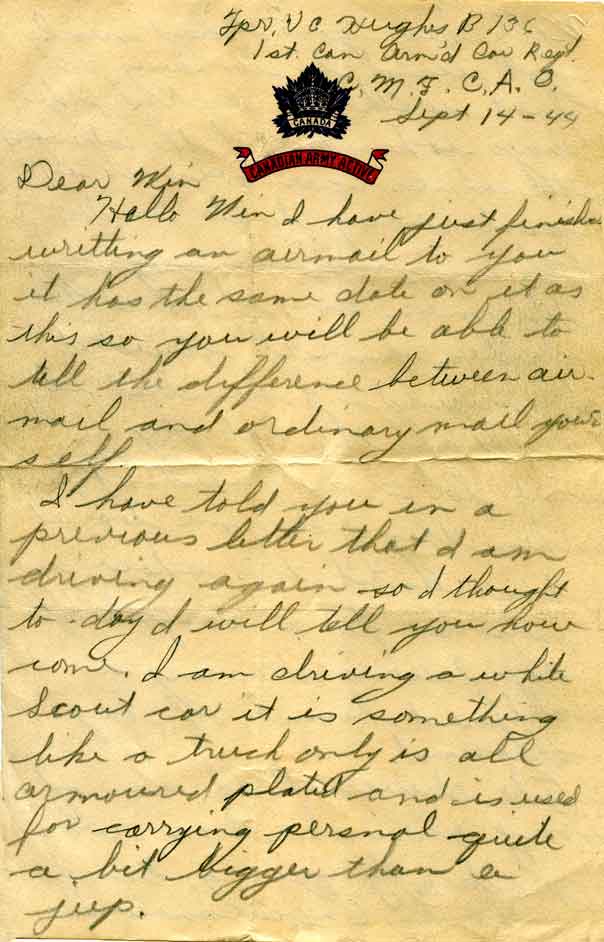 Tpr. V C Hughes B 136
1st. Can Arm'd Car Regt.
C. M. F. C. A. O.
Sept 14-44
CANADA
CANADIAN ARMY ACTIVE
Dear Win
Hello Win I have just finished
writting an airmail to you
it has the same date on it as
this so you will be able to
tell the difference between air-
mail and ordinary mail your
self.
I have told you in a
previous letter that I am
driving again so I thought
to-day I will tell you how
come. I am driving a white
Scout car it is something
like a truck only is all
armoured plated and is used
for carrying personal quite
a bit bigger than a
jeep.